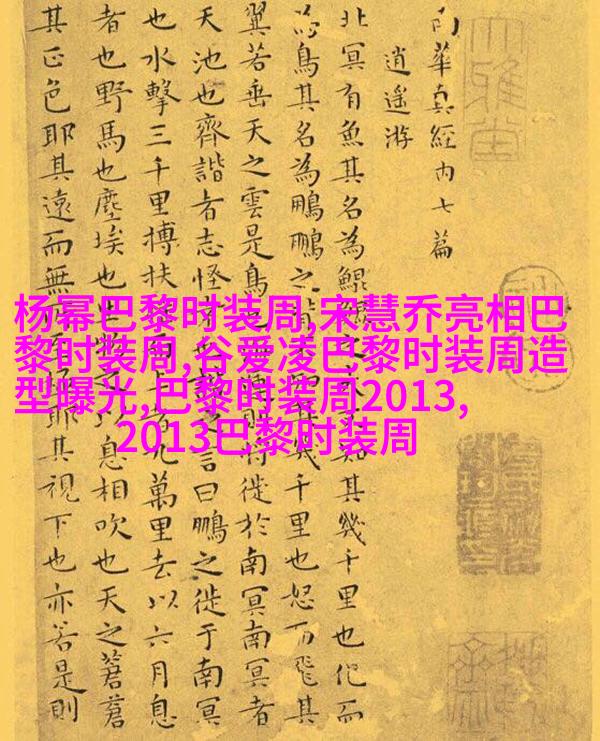 杨幂巴黎时装周,宋慧乔亮相巴
黎时装周,谷爱凌巴黎时装周造
型曝光,巴黎时装周2013,
2013巴黎时装周
南華真經内七篇
逍遥游
北冥有魚其名為鯤其幾千里也化而
為鳥其名為鵬鵬之幾千里也怒而飛其
翼若垂天之雲是鳥也則將徙於南冥南冥者
天池也齊諧者志怪之言曰鵬之徙于南冥
也水擊三千里搏扶上者九萬里去以六月息
者也野馬也塵埃也以息相吹也天之蒼蒼
其正色耶其遠而無耶其視下也亦若是則